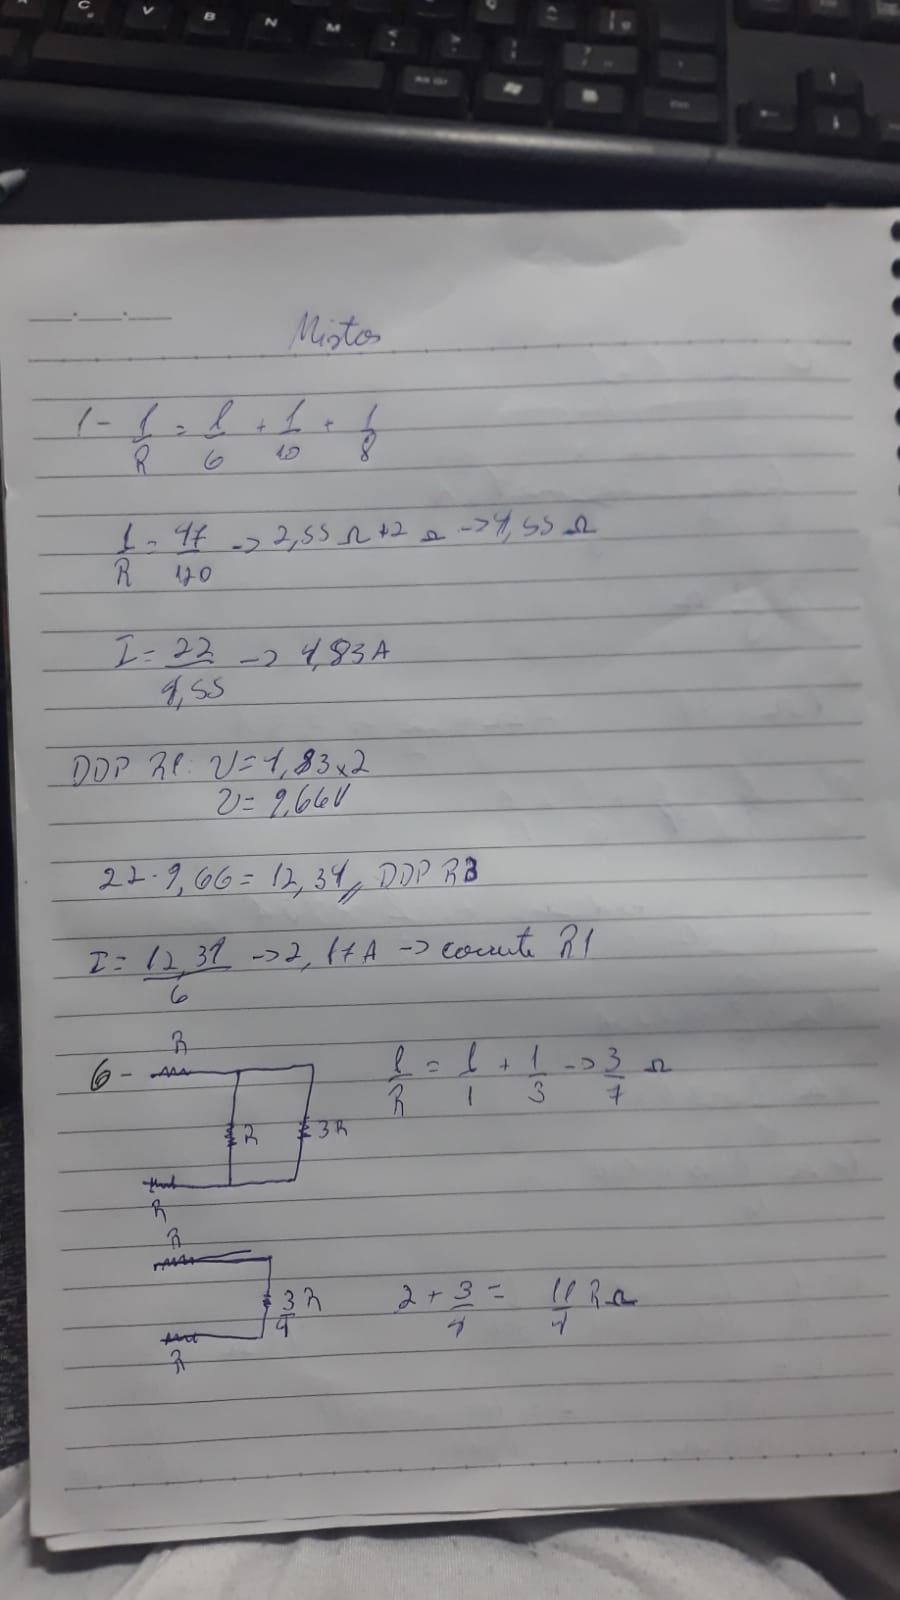 C V B N M
Mistos
1- 1/R = 1/6 + 1/10 + 1/8
1/R = 47/120 -> 2,55 Ω +2 Ω -> 4,55 Ω
I = 22/4,55 -> 4,83 A
DDP R1: V = 4,83 x 2
V = 9,66V
22 - 9,66 = 12,34 // DDP R3
I = 12,34/6 -> 2,17 A -> corrente R1
R
6- 1/R = 1/1 + 1/3 -> 3/4 Ω
R 3R
R
R
3/4 R 2 + 3/4 = 11/4 R Ω
R